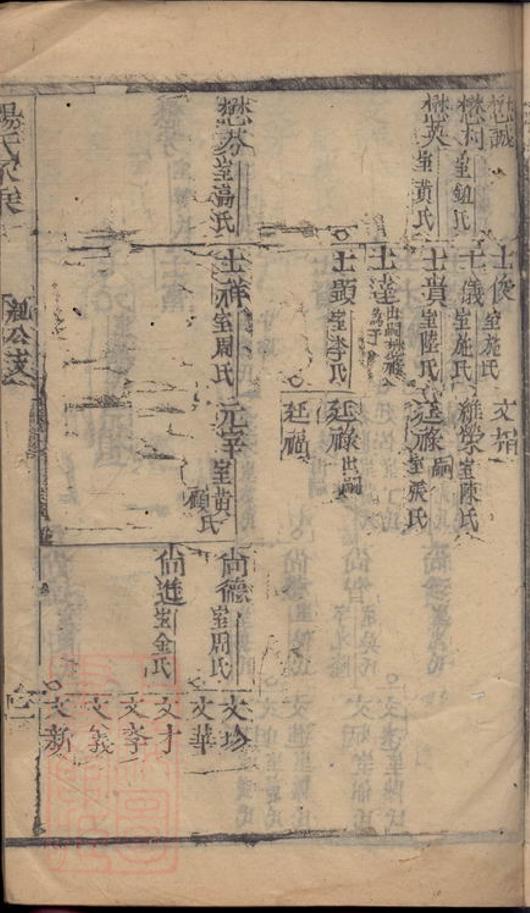 懋誠
懋柯 室鈕氏
懋英 室黄氏
懋芬 室湯氏
士俊 室施氏
士儀 室施氏
士貴 室陸氏
士達 出嗣
士顯 室李氏
士祥 室周氏
文楫
維榮 室陳氏
廷祿 嗣 室張氏
廷祿 出嗣
廷福
元宰 室黄氏 顧氏
尚德 室周氏
尚進 室金氏
文珍
文華
文才
文孝
文義
文新
楊氏
公支